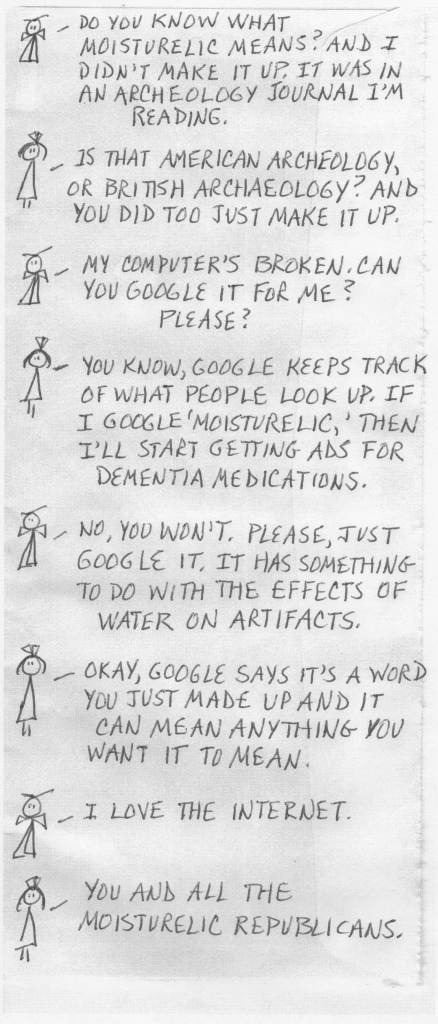 DO YOU KNOW WHAT
MOISTURELIC MEANS? AND I
DIDN'T MAKE IT UP. IT WAS IN
AN ARCHEOLOGY JOURNAL I'M
READING.
IS THAT AMERICAN ARCHEOLOGY,
OR BRITISH ARCHAEOLOGY? AND
YOU DID TOO JUST MAKE IT UP.
MY COMPUTER'S BROKEN. CAN
YOU GOOGLE IT FOR ME?
PLEASE?
YOU KNOW, GOOGLE KEEPS TRACK
OF WHAT PEOPLE LOOK UP. IF
I GOOGLE 'MOISTURELIC,' THEN
I'LL START GETTING ADS FOR
DEMENTIA MEDICATIONS.
NO, YOU WON'T. PLEASE, JUST
GOOGLE IT. IT HAS SOMETHING
TO DO WITH THE EFFECTS OF
WATER ON ARTIFACTS.
OKAY, GOOGLE SAYS IT'S A WORD
YOU JUST MADE UP AND IT
CAN MEAN ANYTHING YOU
WANT IT TO MEAN.
I LOVE THE INTERNET.
YOU AND ALL THE
MOISTURELIC REPUBLICANS.